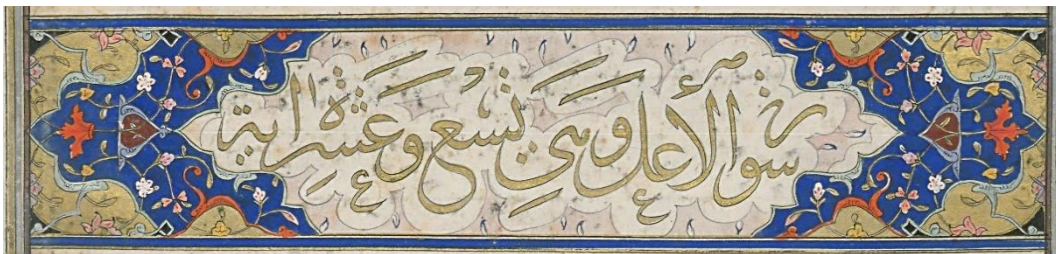 سورة الاعلى وهى تسع وعشرة اية